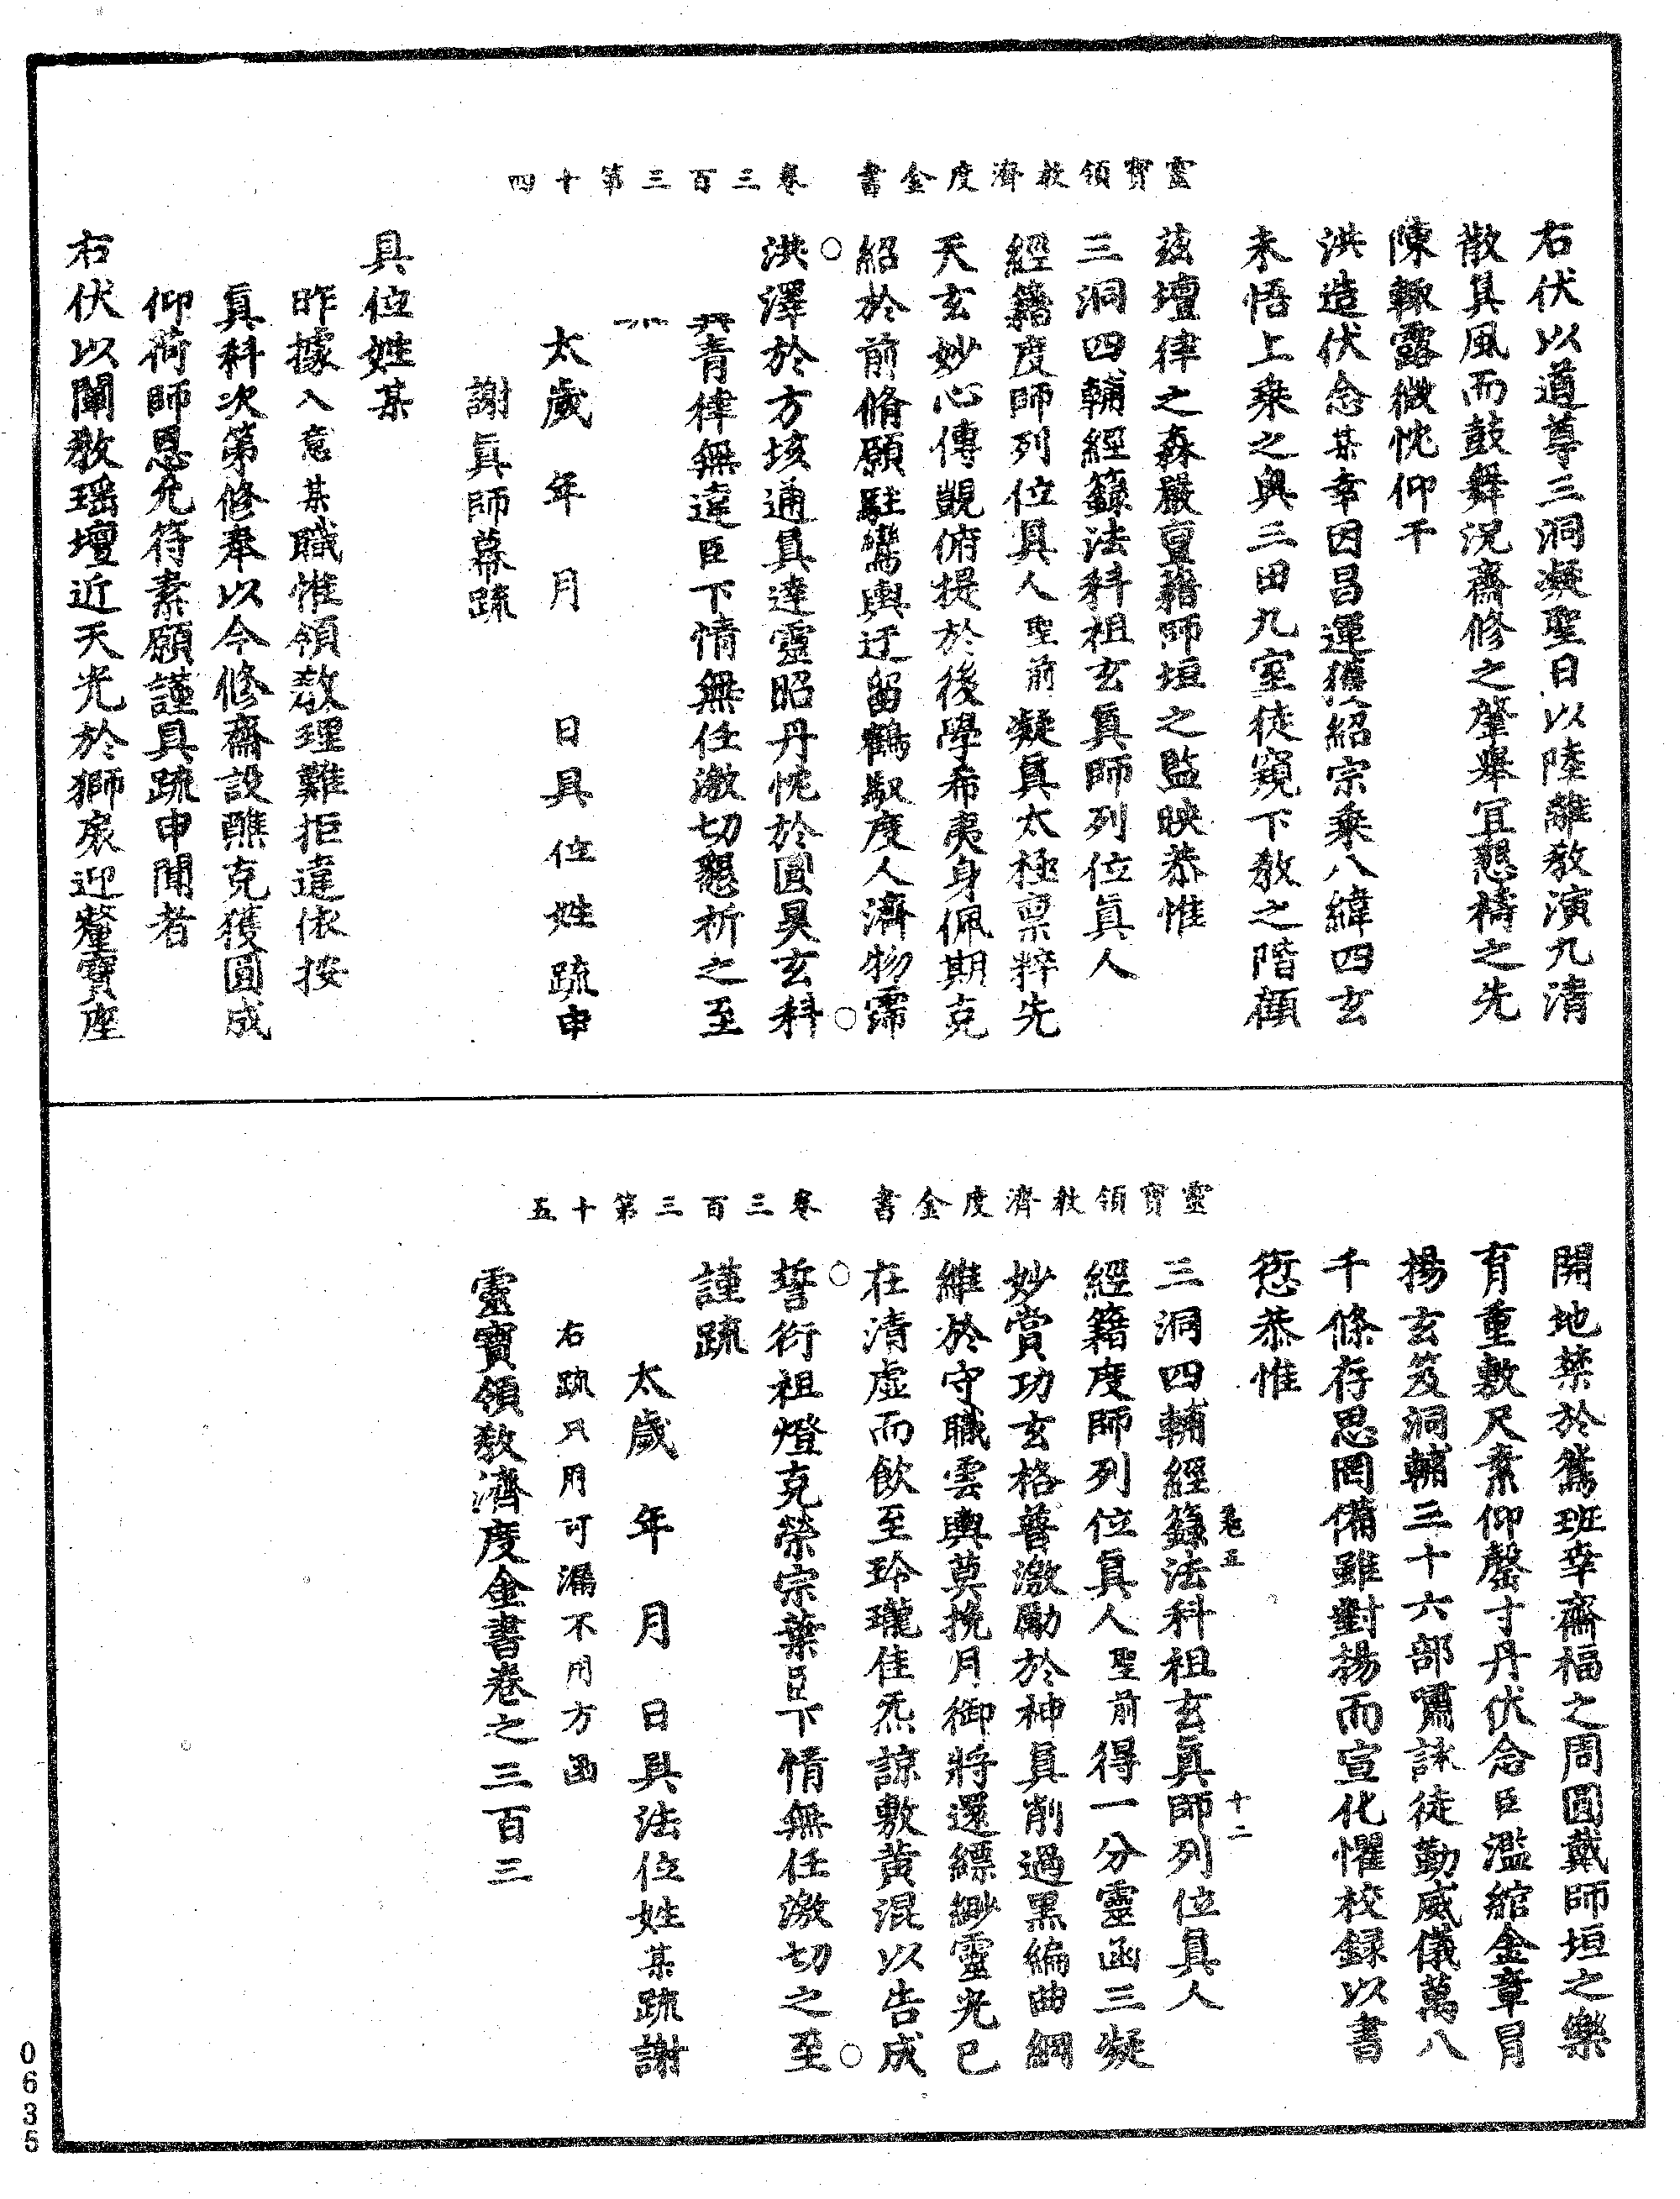 靈寶領教濟度金書　卷三百三第十四
右伏以道尊三洞凝聖日以陸離教演九清
散真風而鼓舞況齋修之肇舉冝懇禱之先
陳輙露微忱仰干
洪造伏念某幸因昌運獲紹宗乘八緯四玄
未悟上乘之奥三田九室徒窺下教之階顧
茲壇律之森嚴亶藉師垣之監映恭惟
三洞四輔經籙法科祖玄真師列位真人
經籍度師列位真人聖前凝真太極禀粹先
天玄妙心傳覬俯提於後學希夷身佩期克
紹於前脩願駐鸞輿迂留鶴馭度人濟物霈
洪澤於方垓通真達靈昭丹忱於圓昊玄科
青律無違臣下情無任激切懇祈之至
太歲　年　月　日具位姓疏申
謝真師幕疏
具位姓某
昨據入意某職惟領教理難拒違依按
真科次第修奉以今修齋設醮克獲圓成
仰荷師恩允符素願謹具疏申聞者
右伏以闡教瑶壇近天光於獅扆迎釐寶座
靈寶領教濟度金書　卷三百三第十五
開地禁於鴛班幸齋福之周圓戴師垣之樂
育重敷尺素仰罄寸丹伏念臣濫綰金章冒
揚玄笈洞輔三十六部屬詠徒勤威儀萬八
千條存思罔備雖對揚而宣化懼校録以書
愆恭惟
三洞四輔經籙法科祖玄真師列位真人
卷五　十二
經籍度師列位真人聖前得一分靈函三凝
妙賞功玄格普激勵於神真削過黒編曲綱
維於守職雲輿莫挽月御將還縹緲靈光已
在清虛而飲至玲瓏佳炁諒敷黄混以告成
誓衍祖燈克榮宗葉臣下情無任激切之至
謹疏
太歲　年　月　日具法位姓某疏謝
右疏只用可漏不用方函
靈寶領教濟度金書卷之三百三
0635